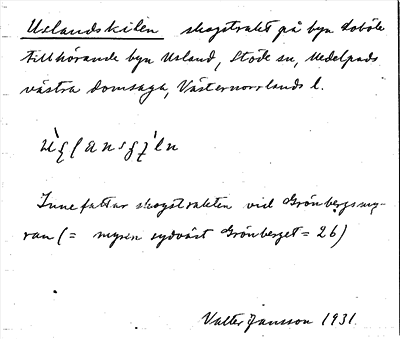 Uslandskilen skogstrakt på byn Boböle
tillhörande byn Usland, Stöde sn, Medelpads
västra domsaga, Västernorrlands l.
Innefattar skogstrakten vid Grönbergsmy-
ran (= myren sydväst Grönberget = 26)
Valter Jansson 1931.